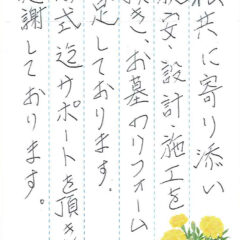 共に寄り添い
案・設計・施工を
頂き、お墓のリフォーム
足しております。
式迄サポートを頂き
感謝しております。